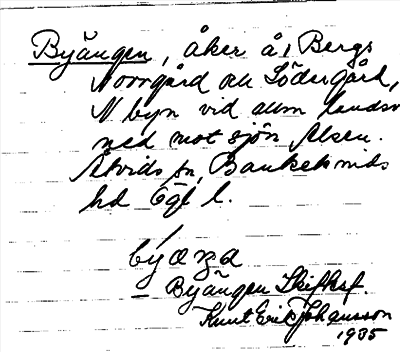 Byängen, åker å, Bergs
Norrgård och Södergård,
N byn vid allm landsv
ned mot sjön Ålsen.
Åtvids sn, Bankekinds
hd Ögl l.
Byängen Skifksf
Knut Erik Johansson
1935